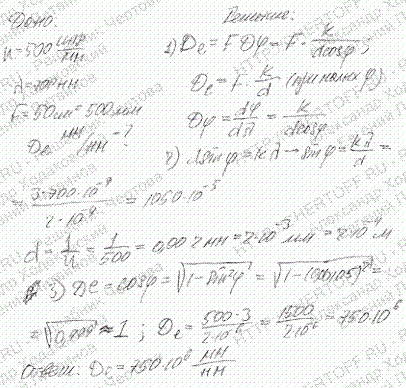 Дано:
n = 500 штр/мм
λ = 700 нм
F = 50 см = 500 мм
De мм/нм - ?
Решение:
1) De = F·Dφ = F· k/dcosφ ;
De = F· k/d (при малых φ).
Dφ = dφ/dλ = k/dcosφ
2) dsinφ = kλ → sinφ = kλ/d =
= 3·700·10⁻⁹/2·10⁻⁶ = 1050·10⁻³
d = 1/n = 1/500 = 0,002 мм = 2·10⁻³ мм = 2·10⁻⁶ м
3) De = cosφ = √1-sin²φ = =
= ≈ 1 ; De = 500·3/2·10⁶ = 1500/2·10⁶ = 750·10⁶
Ответ: De = 750·10⁶ мм/нм